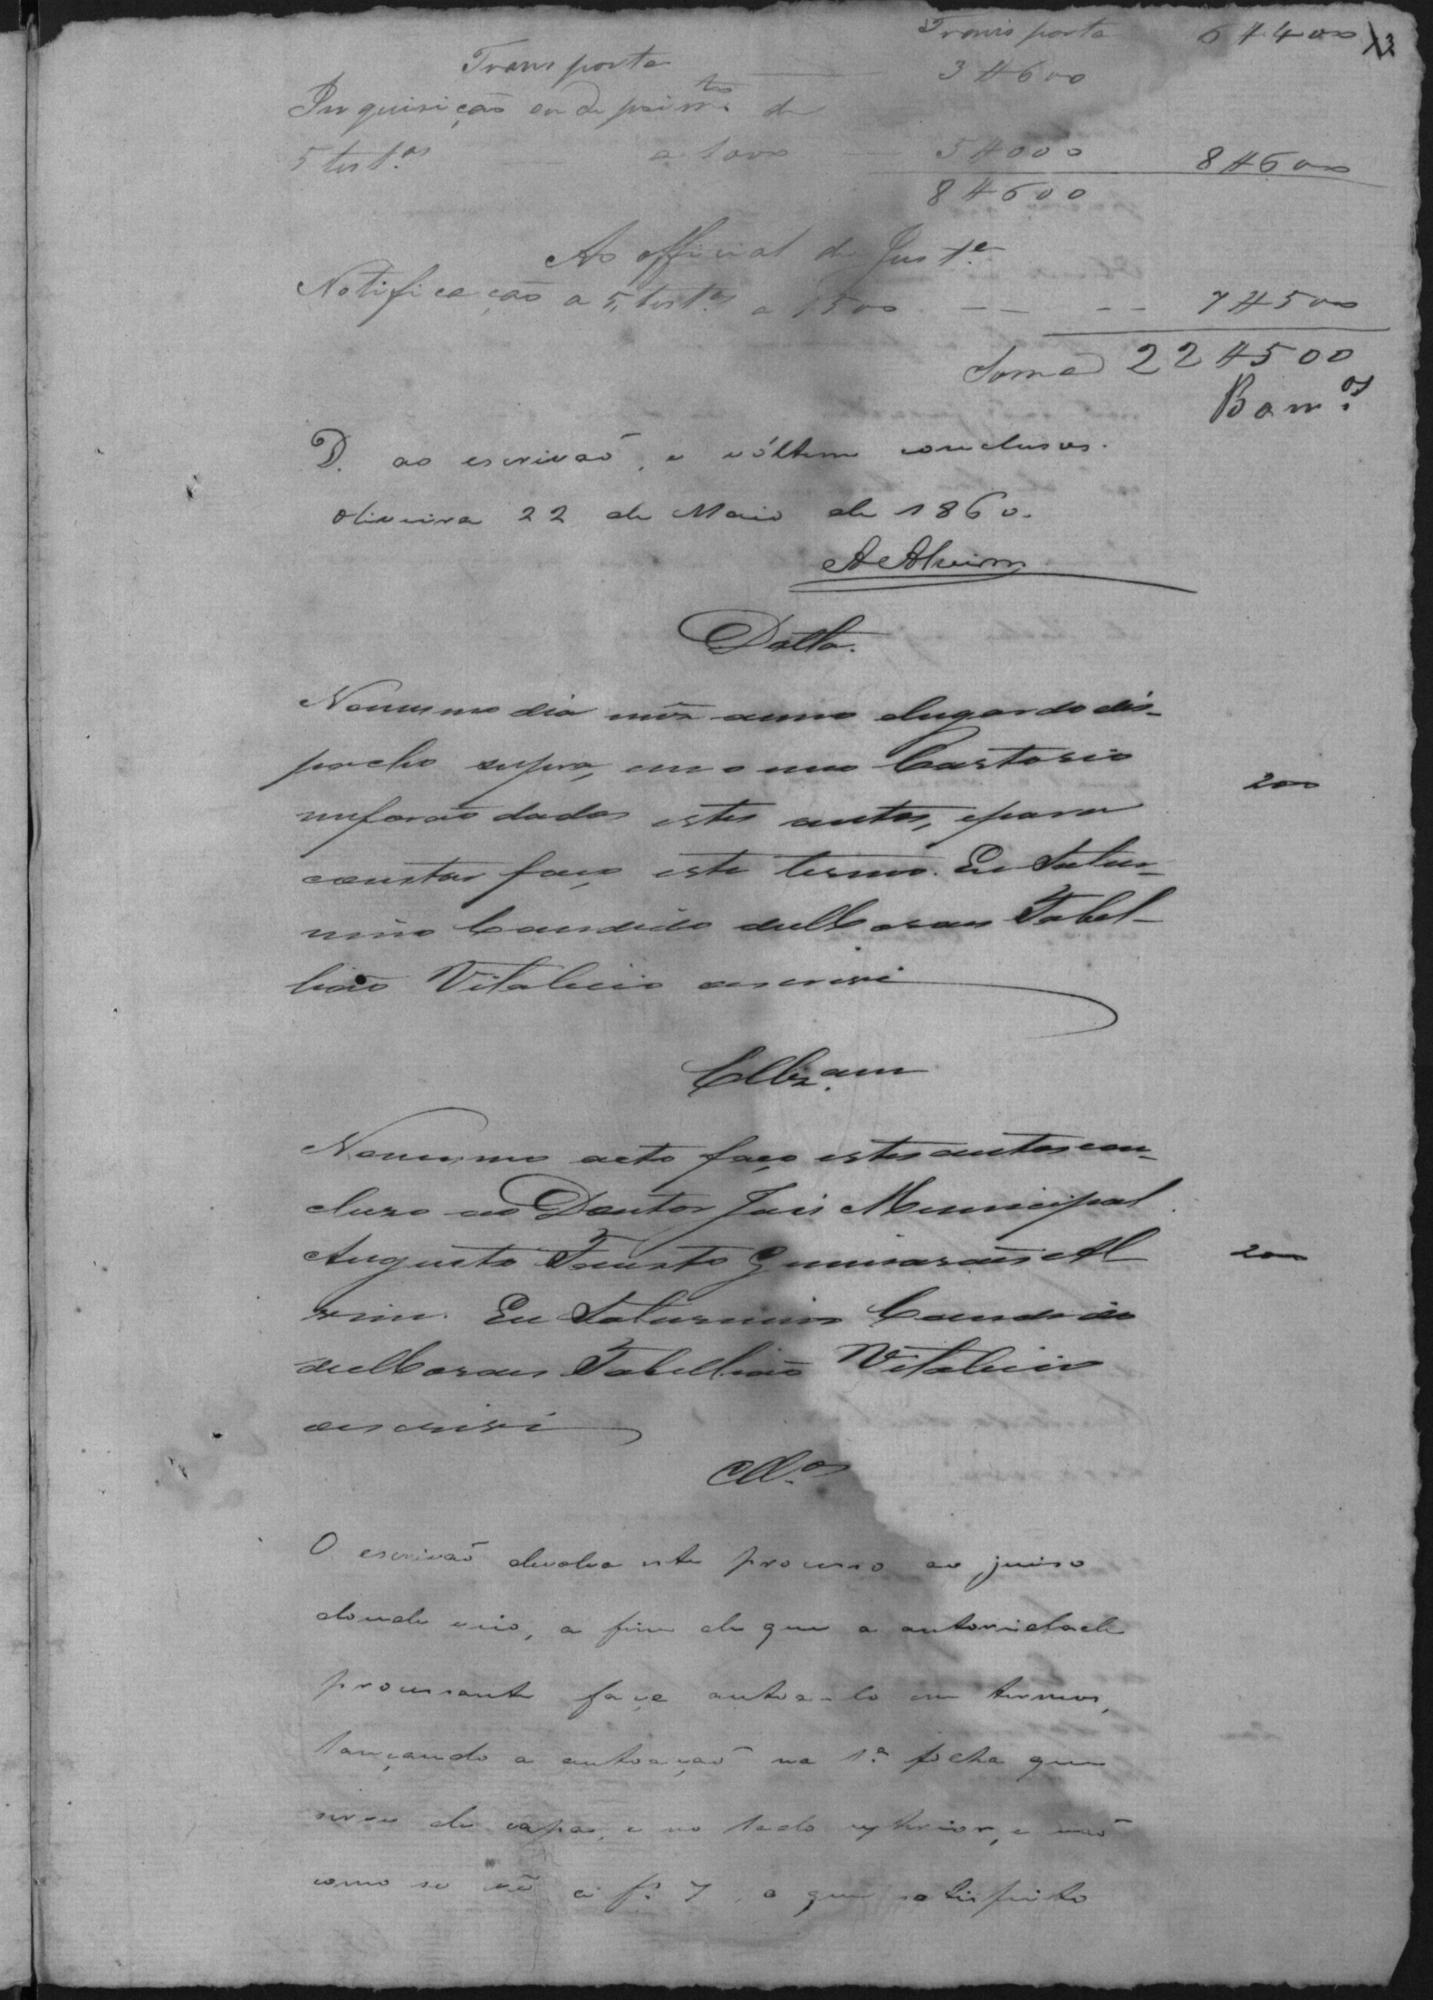 Transporta 6#400 13
Transporta 3#600
Inquirição ou depoim.tos de
5 test.as a 1000 5#000 8#600
8#600
Ao official de Just.e
Notificação a 5 test.as a 1500 7#500
Soma 22#500
Barr.os
D. ao escrivaõ, e vóltem conclusos.
Oliveira 22 de Maio de 1860.
A Alvim
Datta.
No mesmo dia mês anno elugar do dis-
pacho supra, em o meu Cartorio
meforaõ dados estes autos, epara
constar faço este termo. Eu Satur-
nino Candido deMoraes Tabel-
liaõ Vitalicio oescrivi
200
Cllz.am
No mesmo acto faço estes autos con-
cluso ao Doutor Juis Municipal
Augusto Fausto Guimaraẽs Al
vim. Eu Saturnino Candido
deMoraes Tabelliaõ Vitalicio
oescrivi
200
Cll.os
O escrivaõ devolva este processo ao juiso
donde veio, a fim de que a autoridade
processante faça autoa-lo em termos,
lançando a autoaçaõ na 1.ª folha que
serve de capa, e no lado exterior, e naõ
como se vê a f. 7, o que satisfeito